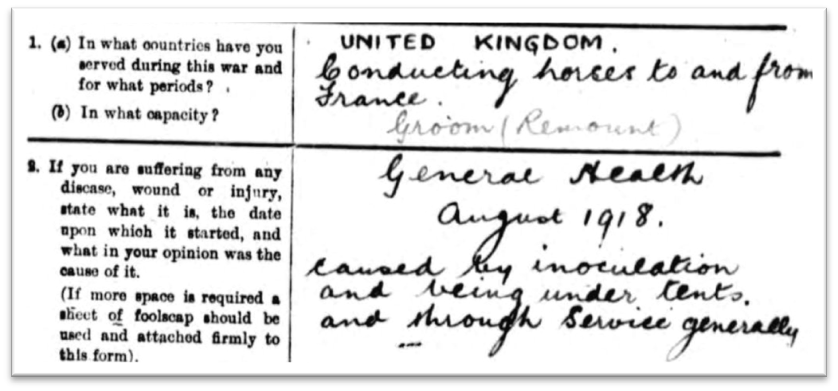 1. (a) In what countries have you
served during this war and
for what periods?
(b) In what capacity?
UNITED KINGDOM.
Conducting horses to and from
France.
Groom (Remount)
2. If you are suffering from any
disease, wound or injury,
state what it is, the date
upon which it started, and
what in your opinion was the
cause of it.
(If more space is required a
sheet of foolscap should be
used and attached firmly to
this form).
General Health
August 1918.
caused by inoculation
and being under tents.
and through Service generally